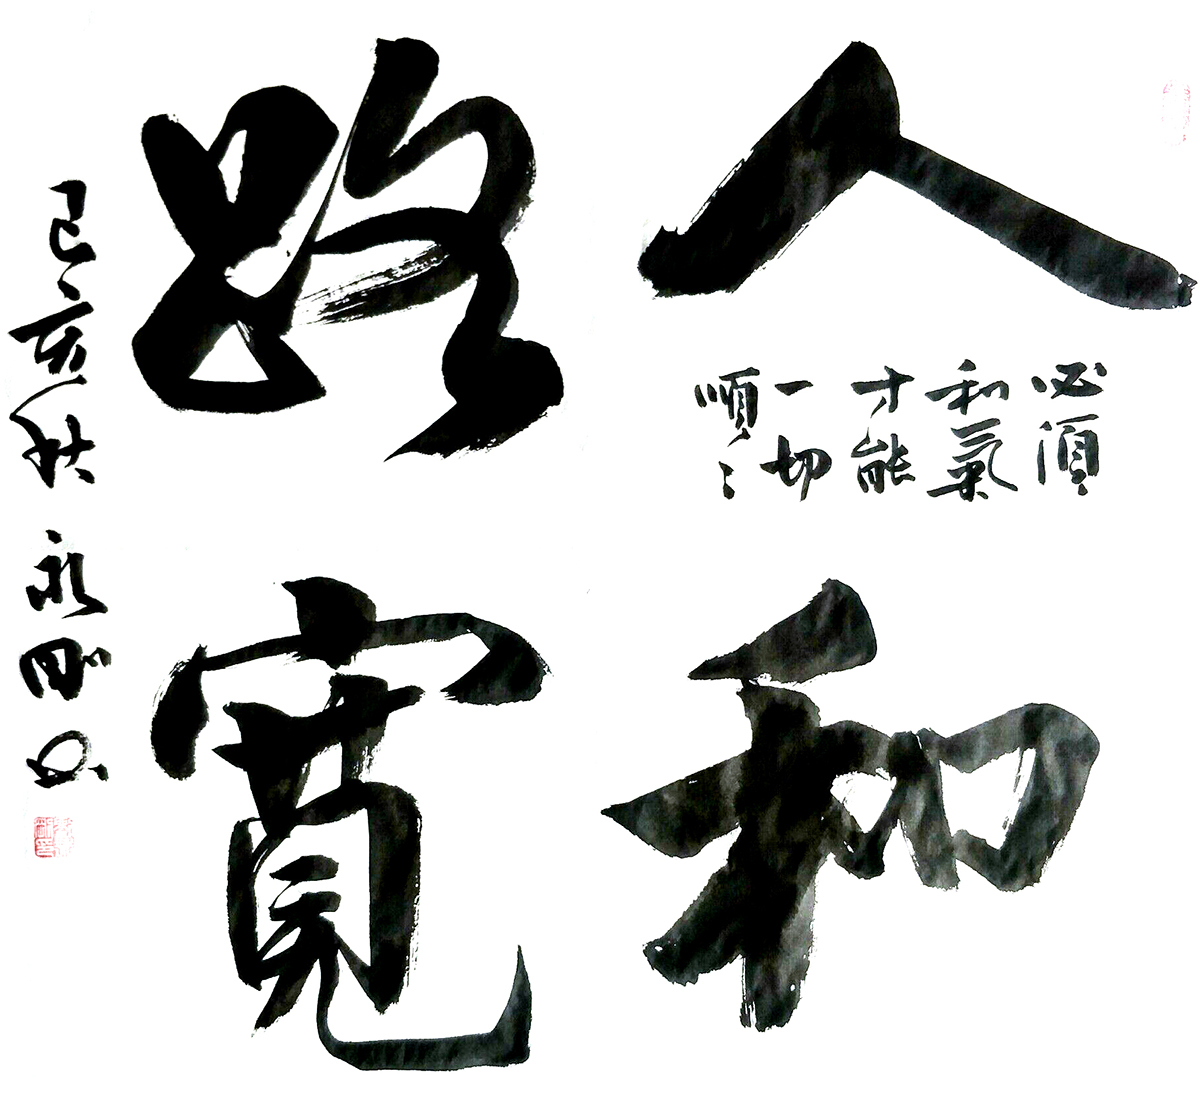 人和
路寬
必須
和氣
才能
一切
順〻
己亥秋 永剛书